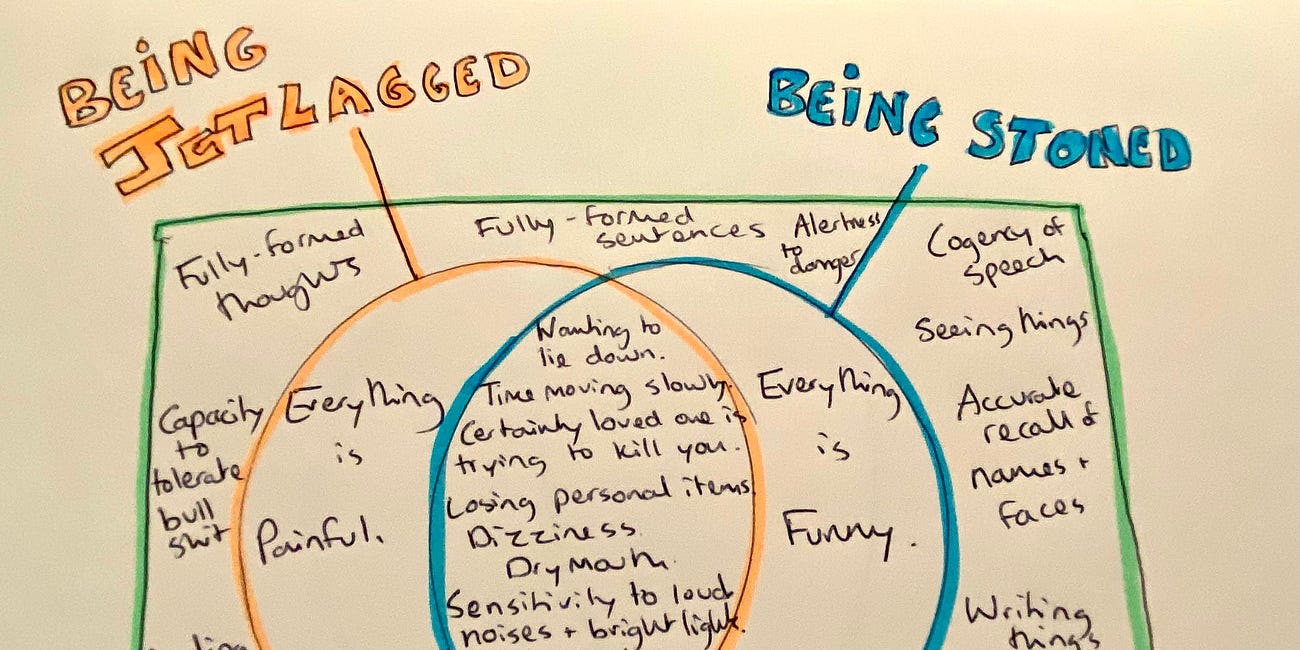 BEING
JETLAGGED
BEING STONED
Fully-formed
thoughts
Fully-formed
sentences
Alertness
to
danger
Cogency of
speech
Seeing things
Accurate
recall of
names +
faces
Writing
things
Capacity
to
tolerate
bull
shit
Everything
is
Painful.
Wanting to
lie down.
Time moving slowly.
Certainty loved one is
trying to kill you.
Losing personal items
Dizziness.
Dry Mouth.
Sensitivity to loud
noises + bright light.
Everything
is
Funny.